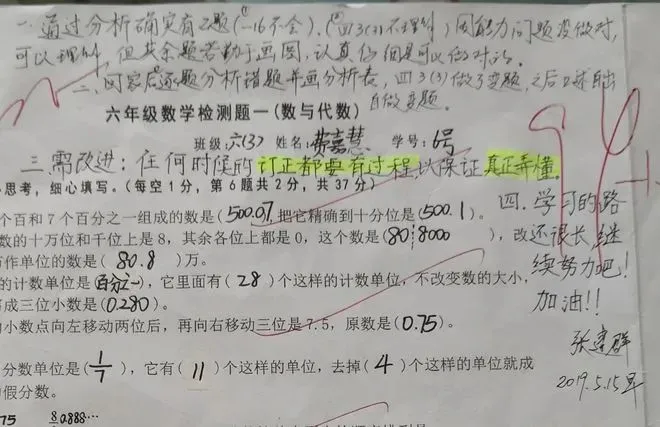 一.通过分析确实有2题(①-16不会),(②四3(3)不理解)因能力问题没做对,
可以理解,但其余题若勤于画图,认真仔细是可以做对的。
二.回家后逐题分析错题并画分析表,四3(3)做了变题,之后口述自出
自做变题。
六年级数学检测题一(数与代数)
班级:六(3) 姓名:费嘉慧 学号:6号
三.需改进:任何时候的订正都要有过程以保证真正弄懂。
思考,细心填写。(每空1分,第6题共2分,共37分)
个百和7个百分之一组成的数是(500.07,把它精确到十分位是(500.1)。
数的十万位和千位上是8,其余各位上都是0,这个数是(80¦8000),改
作单位的数是(80.8)万。
的计数单位是(百分之一),它里面有(28)个这样的计数单位,不改变数的大小,
成三位小数是(0.280)。
小数点向左移动两位后,再向右移动三位是7.5,原数是(0.75)。
分数单位是(1/7),它有(11)个这样的单位,去掉(4)个这样的单位就成
假分数。
75 8 0.888…
94
四.学习的路
还很长,继
续努力吧!
加油!!
张建群
2019.5.15早